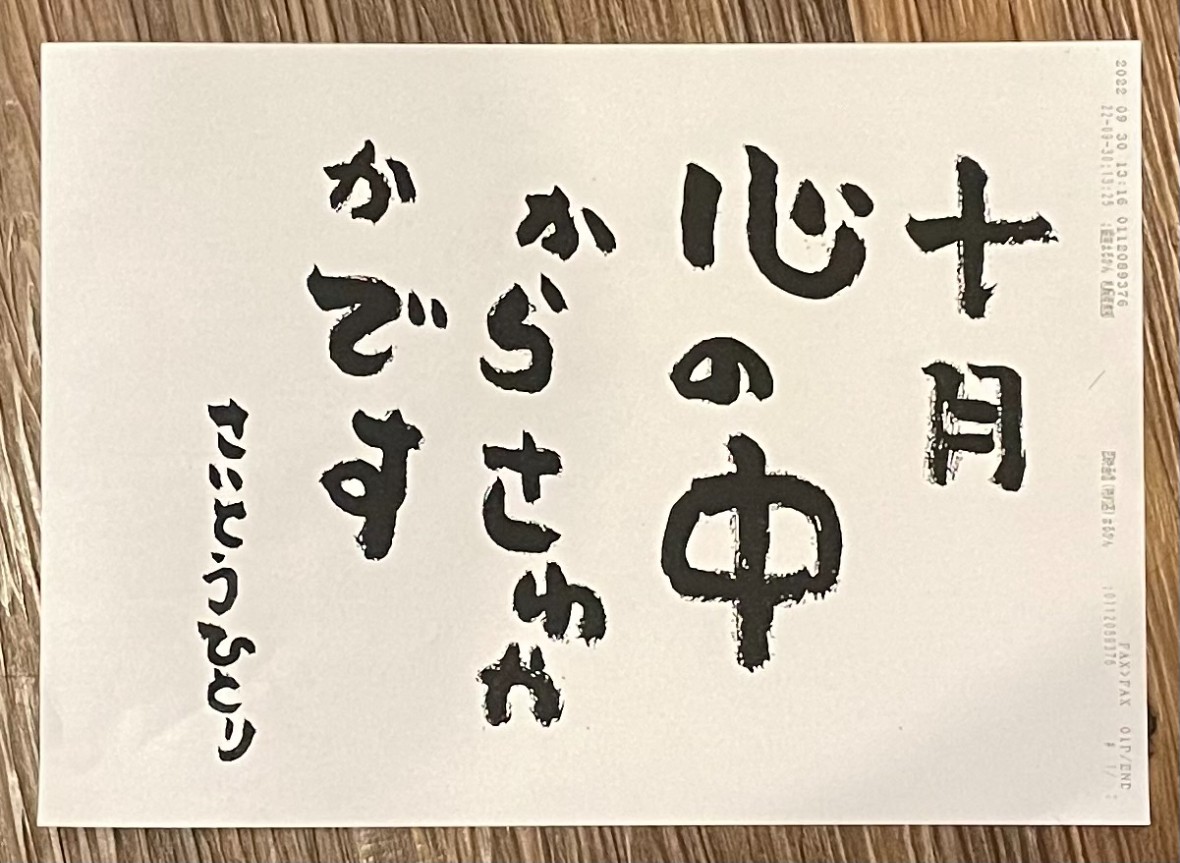 2022 09 30 13:16 0112089376 FAX>FAX 01P/END
22-09-30;13:25 ;0112089376 # 1/
十月
心の中
からさわや
かです
さいとうひとり